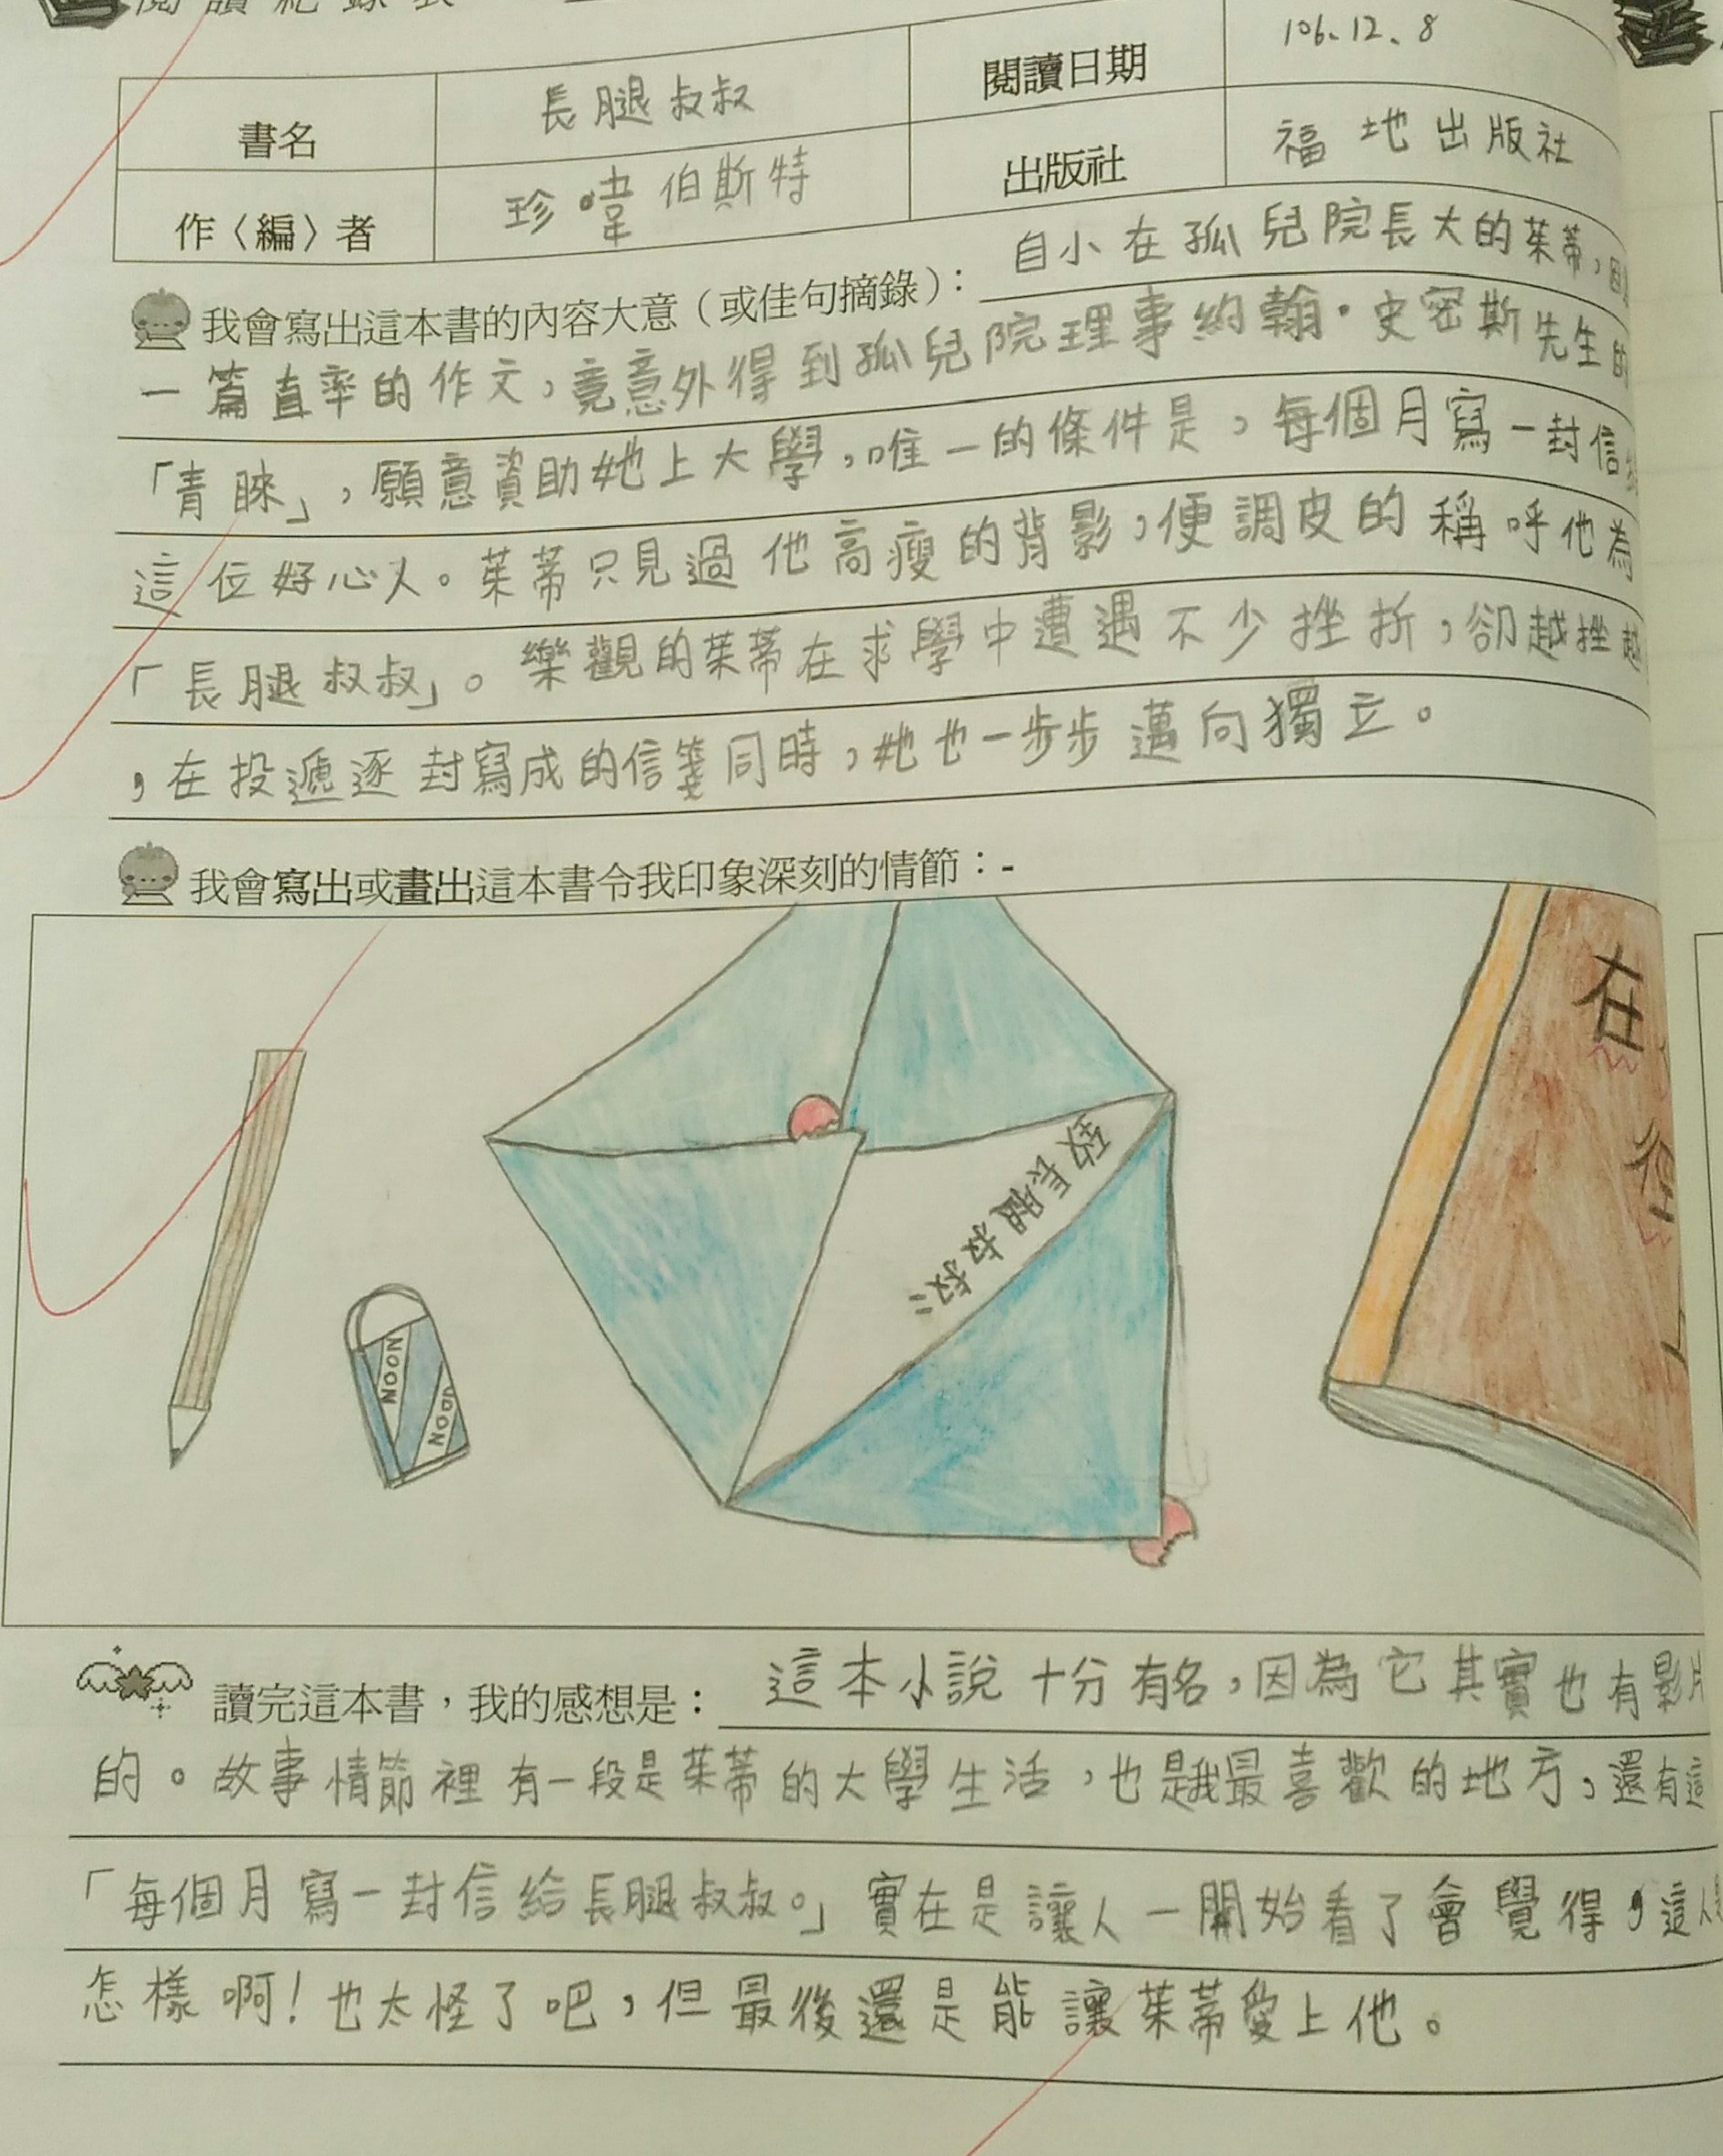 閱讀紀錄表
書名 長腿叔叔 閱讀日期 106.12.8
作〈編〉者 珍 喡伯斯特 出版社 福地出版社
我會寫出這本書的內容大意（或佳句摘錄）： 自小在孤兒院長大的茱蒂，因
一篇直率的作文，竟意外得到孤兒院理事約翰·史密斯先生的
「青睞」，願意資助她上大學，唯一的條件是，每個月寫一封信
這位好心人。茱蒂只見過他高瘦的背影，便調皮的稱呼他為
「長腿叔叔」。樂觀的茱蒂在求學中遭遇不少挫折，卻越挫越
，在投遞逐封寫成的信箋同時，她也一步步邁向獨立。
我會寫出或畫出這本書令我印象深刻的情節：-
致長腿叔叔：
NOON
NOON
在
讀完這本書，我的感想是： 這本小說十分有名，因為它其實也有影片
的。故事情節裡有一段是茱蒂的大學生活，也是我最喜歡的地方，還有這
「每個月寫一封信給長腿叔叔。」實在是讓人一開始看了會覺得，這人
怎樣啊！也太怪了吧，但最後還是能讓茱蒂愛上他。